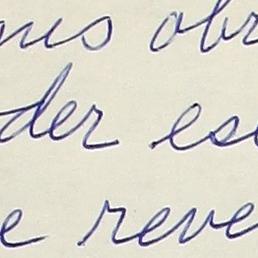 mes obr
der es
e reve